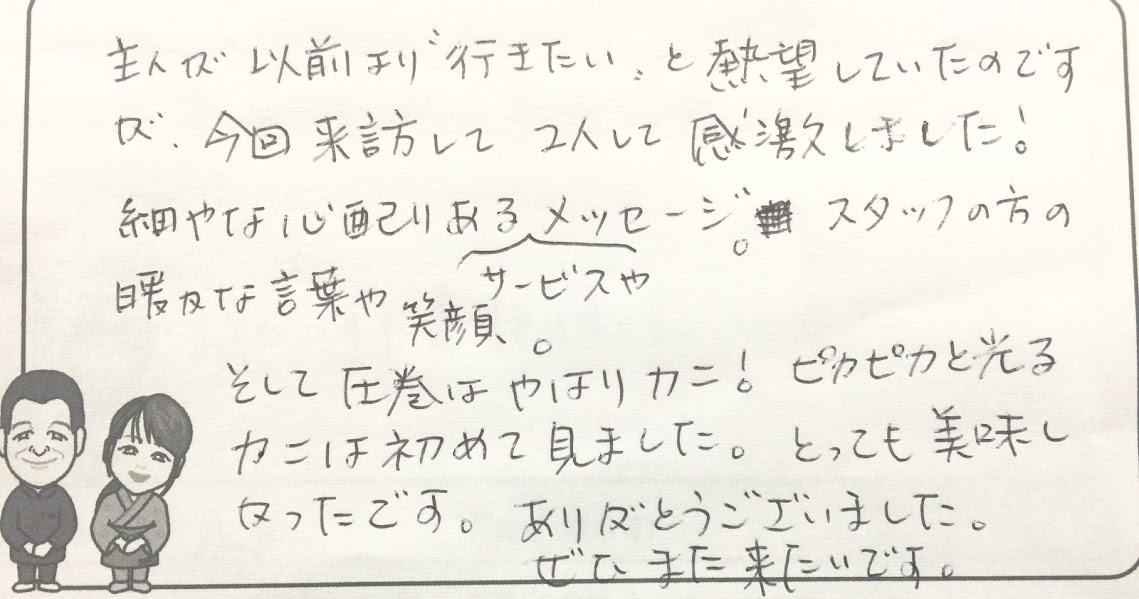 主人が以前より〝行きたい〟と熱望していたのです
が、今回来訪して2人して感激しました！
細やな心配りあるサービスやメッセージ。スタッフの方の
暖かな言葉や笑顔。
そして圧巻はやはりカニ！ピカピカと光る
カニは初めて見ました。とっても美味し
かったです。ありがとうございました。
ぜひまた来たいです。